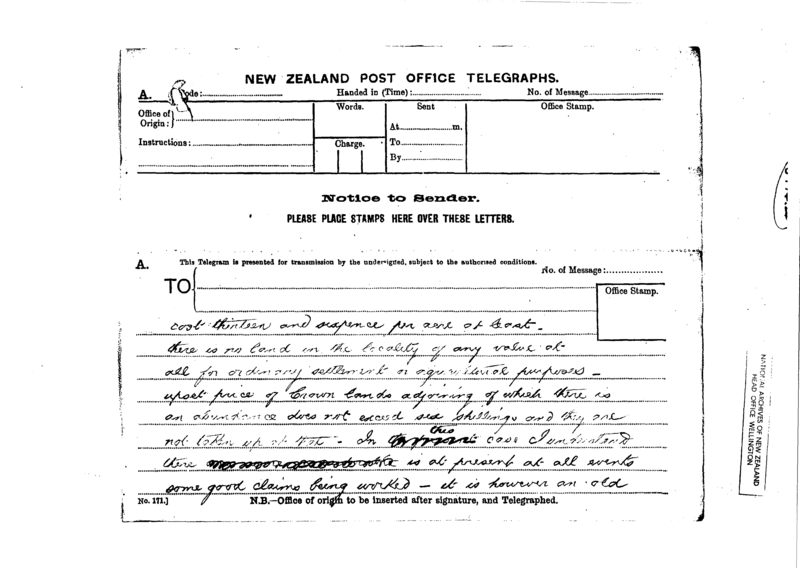 NEW ZEALAND POST OFFICE TELEGRAPHS.
A. Code: Handed in (Time): No. of Message
Office of Origin: Words. Sent Office Stamp.
At m.
Instructions: Charge. To
By
Notice to Sender.
PLEASE PLACE STAMPS HERE OVER THESE LETTERS.
A. This Telegram is presented for transmission by the undersigned, subject to the authorised conditions.
No. of Message:
TO
Office Stamp.
cost thirteen and sixpence per acre at least -
there is no land in the locality of any value at
all for ordinary settlement or agricultural purposes -
upset price of Crown lands adjoining of which there is
an abundance does not exceed six shillings and they are
not taken up at that - In this case I understand
there is at present at all events
some good claims being worked - it is however an old
No. 171.] N.B.—Office of origin to be inserted after signature, and Telegraphed.
NATIONAL ARCHIVES OF NEW ZEALAND
HEAD OFFICE WELLINGTON